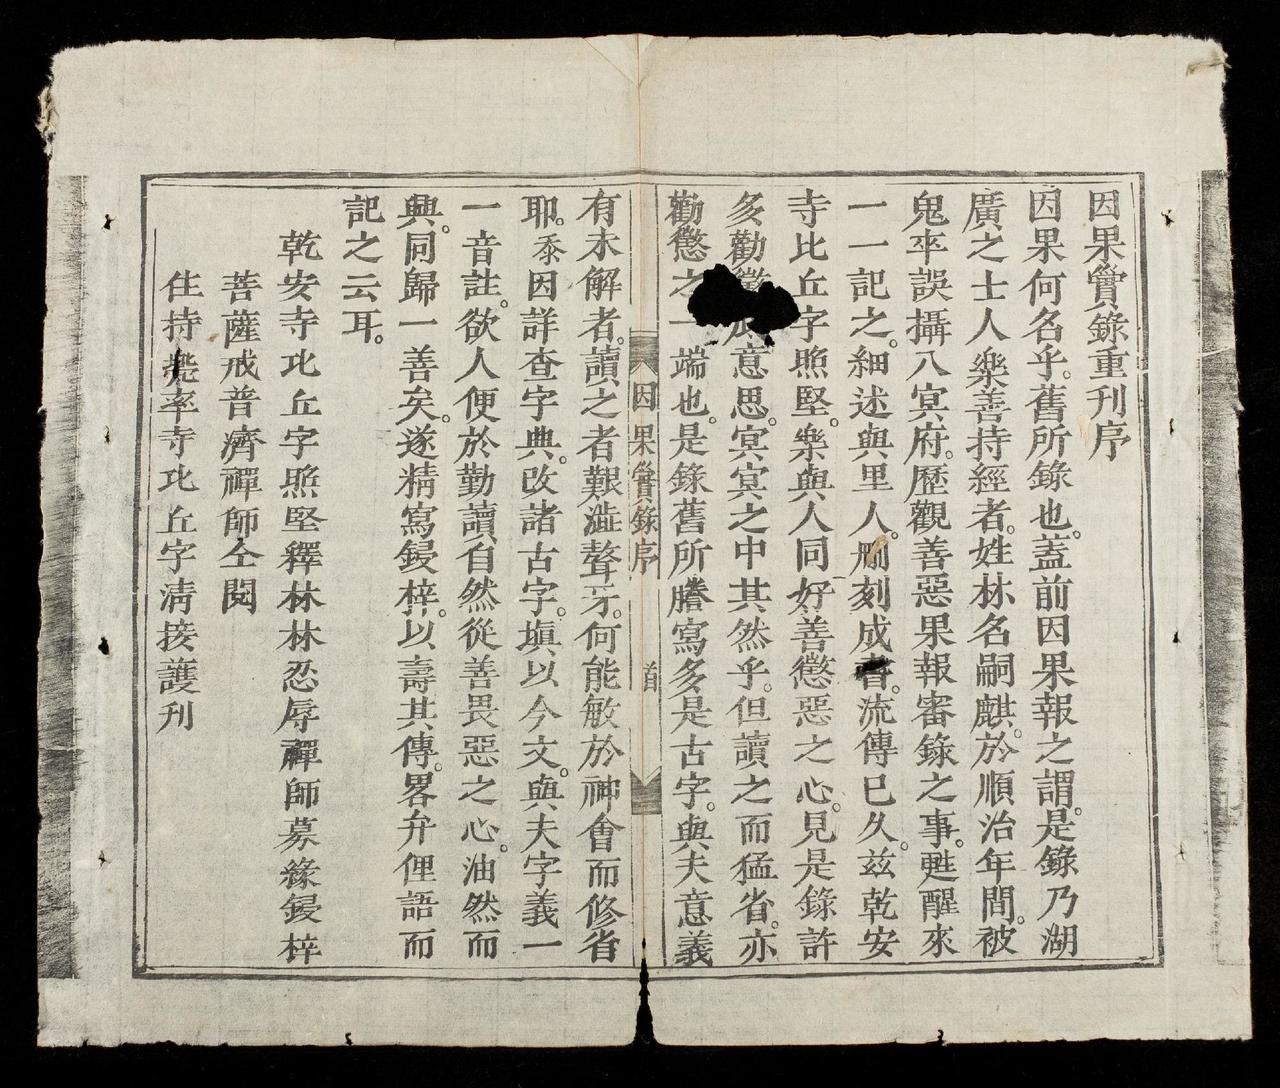 因果實錄重刊序
因果何名乎。舊所錄也。蓋前因果報之謂。是錄乃湖
廣之士人樂善持經者。姓林名嗣麒。於順治年間。被
鬼卒誤攝入冥府。歷觀善惡果報審錄之事。甦醒來
一一記之。細述與里人。刪刻成書。流傳已久。茲乾安
寺比丘字照堅。樂與人同好善懲惡之心。見是錄許
多勸懲意思。冥冥之中其然乎。但讀之而猛省。亦
勸懲之一端也。是錄舊所謄寫多是古字。與夫意義
因果實錄序 首
有未解者。讀之者艱澁聱牙。何能敏於神會而修省
耶。忝因詳查字典。改諸古字。塡以今文。與夫字義一
一音註。欲人便於勤讀。自然從善畏惡之心。油然而
興。同歸一善矣。遂精寫鋟梓。以壽其傳。畧弁俚語而
記之云耳。
乾安寺比丘字照堅釋林林忍辱禪師募緣鋟梓
菩薩戒普濟禪師仝閱
住持兠率寺比丘字清接護刊